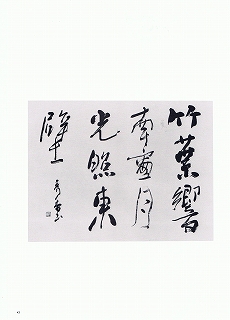 竹葉響
南窗月
光照東
壁土